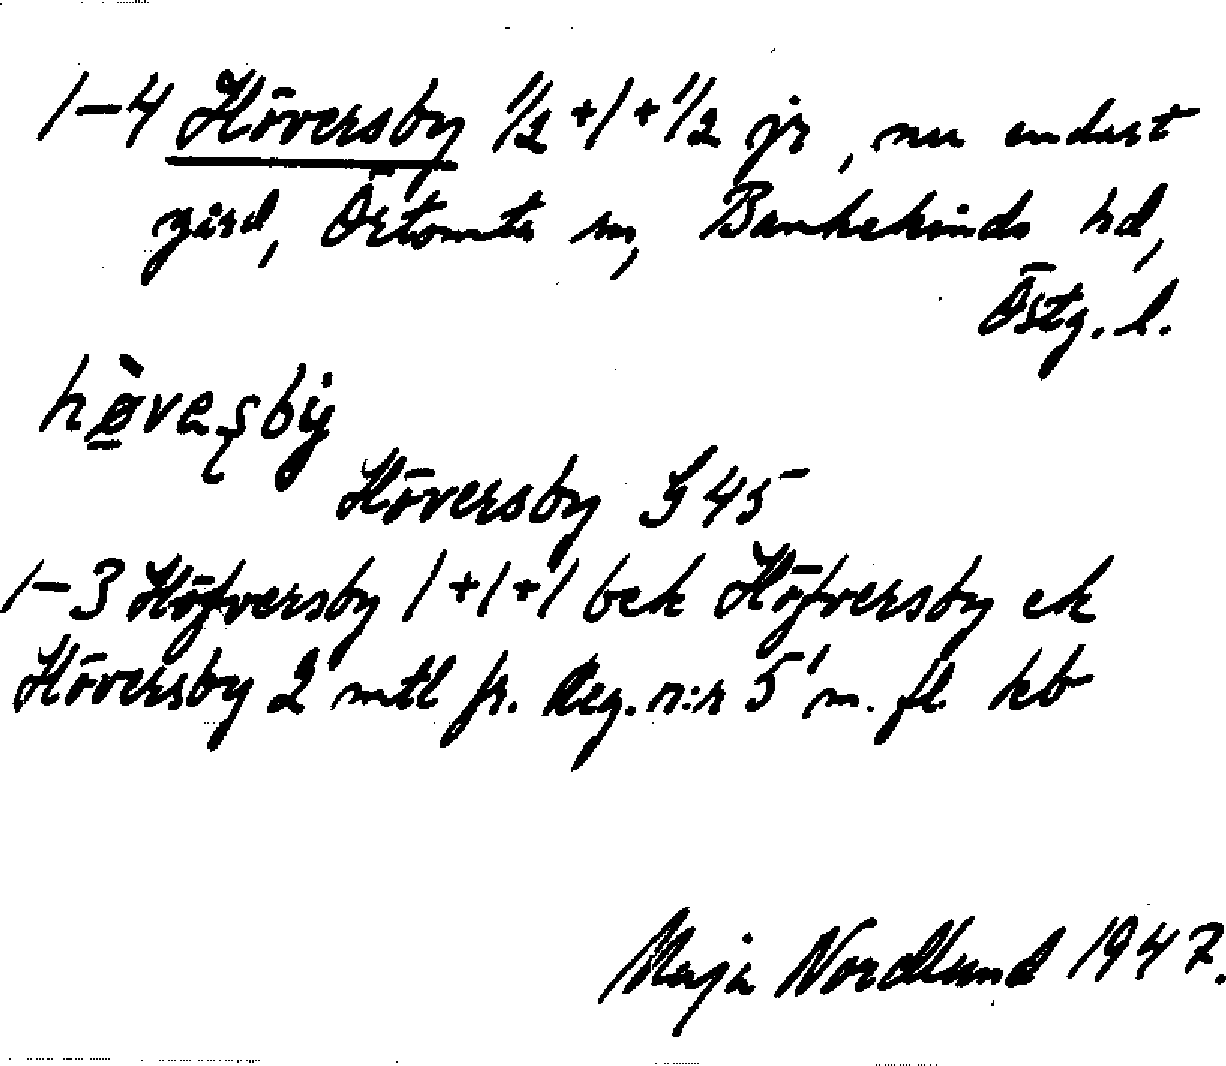 1–4 Höversby 1/2 + 1 + 1/2 jr, nu endast
gård, Örtomta sn, Bankekinds hd,
Östg. l.
hø̀veʂby
Höversby G 45
1–3 Höfversby 1+1+1 bek Höfversby ek
Höversby 2 mtl fr. Reg. n:r 5 m. fl. kb
Maja Nordlund 1947.